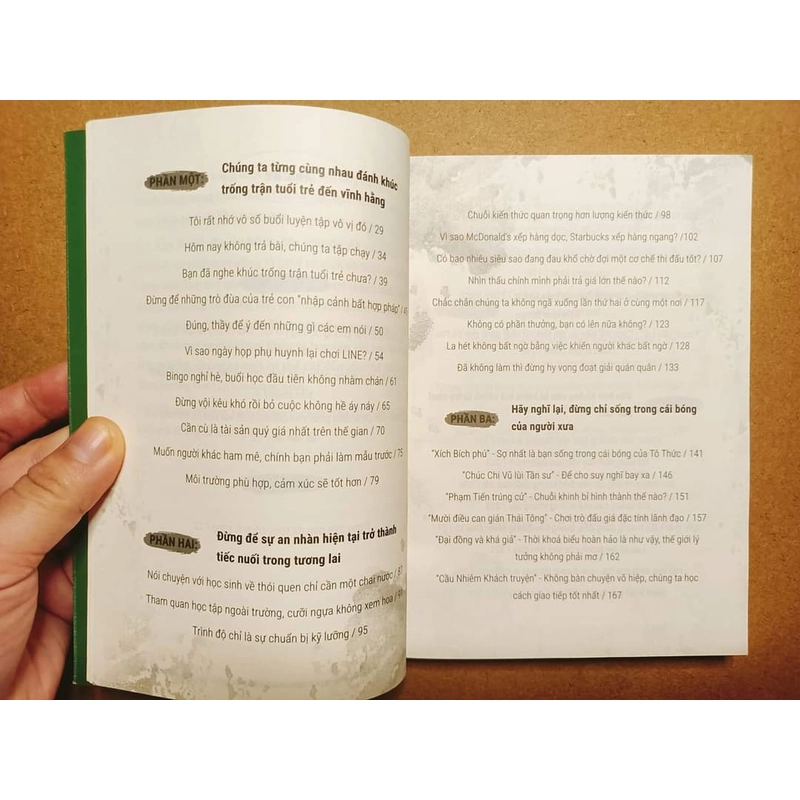 PHẦN MỘT:
Chúng ta từng cùng nhau đánh khúc
trống trận tuổi trẻ đến vĩnh hằng
Tôi rất nhớ vô số buổi luyện tập vô vị đó / 29
Hôm nay không trả bài, chúng ta tập chạy / 34
Bạn đã nghe khúc trống trận tuổi trẻ chưa? / 39
Đừng để những trò đùa của trẻ con "nhập cảnh bất hợp pháp" /
Đúng, thầy để ý đến những gì các em nói / 50
Vì sao ngày họp phụ huynh lại chơi LINE? / 54
Bingo nghỉ hè, buổi học đầu tiên không nhàm chán / 61
Đừng vội kêu khó rồi bỏ cuộc không hề áy náy / 65
Cần cù là tài sản quý giá nhất trên thế gian / 70
Muốn người khác ham mê, chính bạn phải làm mẫu trước / 75
Môi trường phù hợp, cảm xúc sẽ tốt hơn / 79
PHẦN HAI:
Đừng để sự an nhàn hiện tại trở thành
tiếc nuối trong tương lai
Nói chuyện với học sinh về thói quen chỉ cần một chai nước / 87
Tham quan học tập ngoài trường, cưỡi ngựa không xem hoa /
Trình độ chỉ là sự chuẩn bị kỹ lưỡng / 95
Chuỗi kiến thức quan trọng hơn lượng kiến thức / 98
Vì sao McDonald's xếp hàng dọc, Starbucks xếp hàng ngang? /102
Có bao nhiêu siêu sao đang đau khổ chờ đợi một cơ chế thi đấu tốt? / 107
Nhìn thấu chính mình phải trả giá lớn thế nào? / 112
Chắc chắn chúng ta không ngã xuống lần thứ hai ở cùng một nơi / 117
Không có phần thưởng, bạn có lên nữa không? / 123
La hét không bất ngờ bằng việc khiến người khác bất ngờ / 128
Đã không làm thì đừng hy vọng đoạt giải quán quân / 133
PHẦN BA:
Hãy nghĩ lại, đừng chỉ sống trong cái bóng
của người xưa
"Xích Bích phú" - Sợ nhất là bạn sống trong cái bóng của Tô Thức / 141
"Chúc Chi Vũ lùi Tần sư" - Để cho suy nghĩ bay xa / 146
"Phạm Tiến trúng cử" - Chuỗi khinh bỉ hình thành thế nào? / 151
"Mười điều can gián Thái Tông" - Chơi trò đấu giá đặc tính lãnh đạo / 157
"Đại đồng và khá giả" - Thời khoá biểu hoàn hảo là như vậy, thế giới lý
tưởng không phải mơ / 162
"Cầu Nhiêm Khách truyện" - Không bàn chuyện võ hiệp, chúng ta học
cách giao tiếp tốt nhất / 167